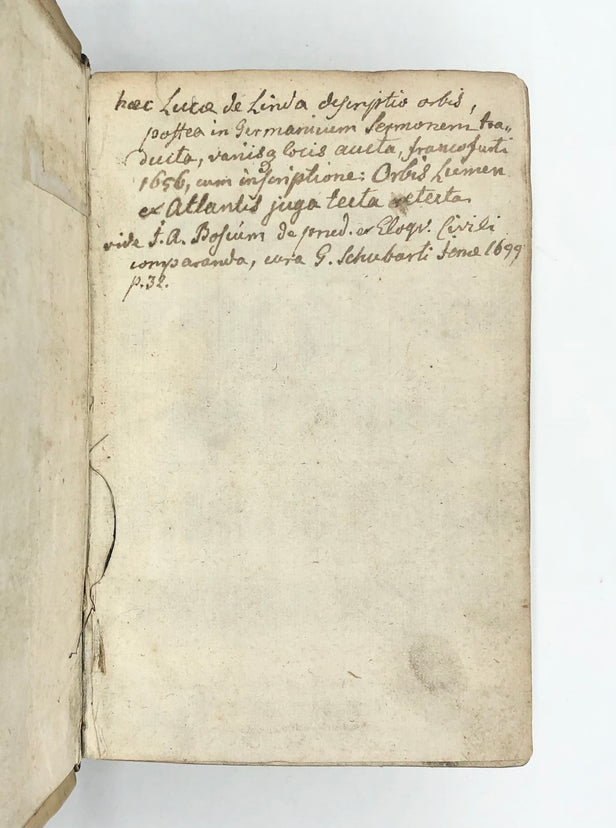 haec Lucae de Linda descriptio orbis,
postea in Germanicum Sermonem tra„
ducta, variisq locis aucta, francofurti
1656, cum inscriptione: Orbis Lumen
et Atlantis juga tecta retecta.
vide J. A. Bosium de prud. et Eloqv. Civili
comparanda, cura G. Schubarti Jenae 1699
p. 32.